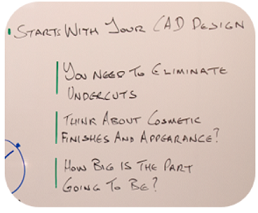 Starts With Your CAD Design
You Need To Eliminate
Undercuts
Think About Cosmetic
Finishes And Appearance?
How Big Is The Part
Going To Be?